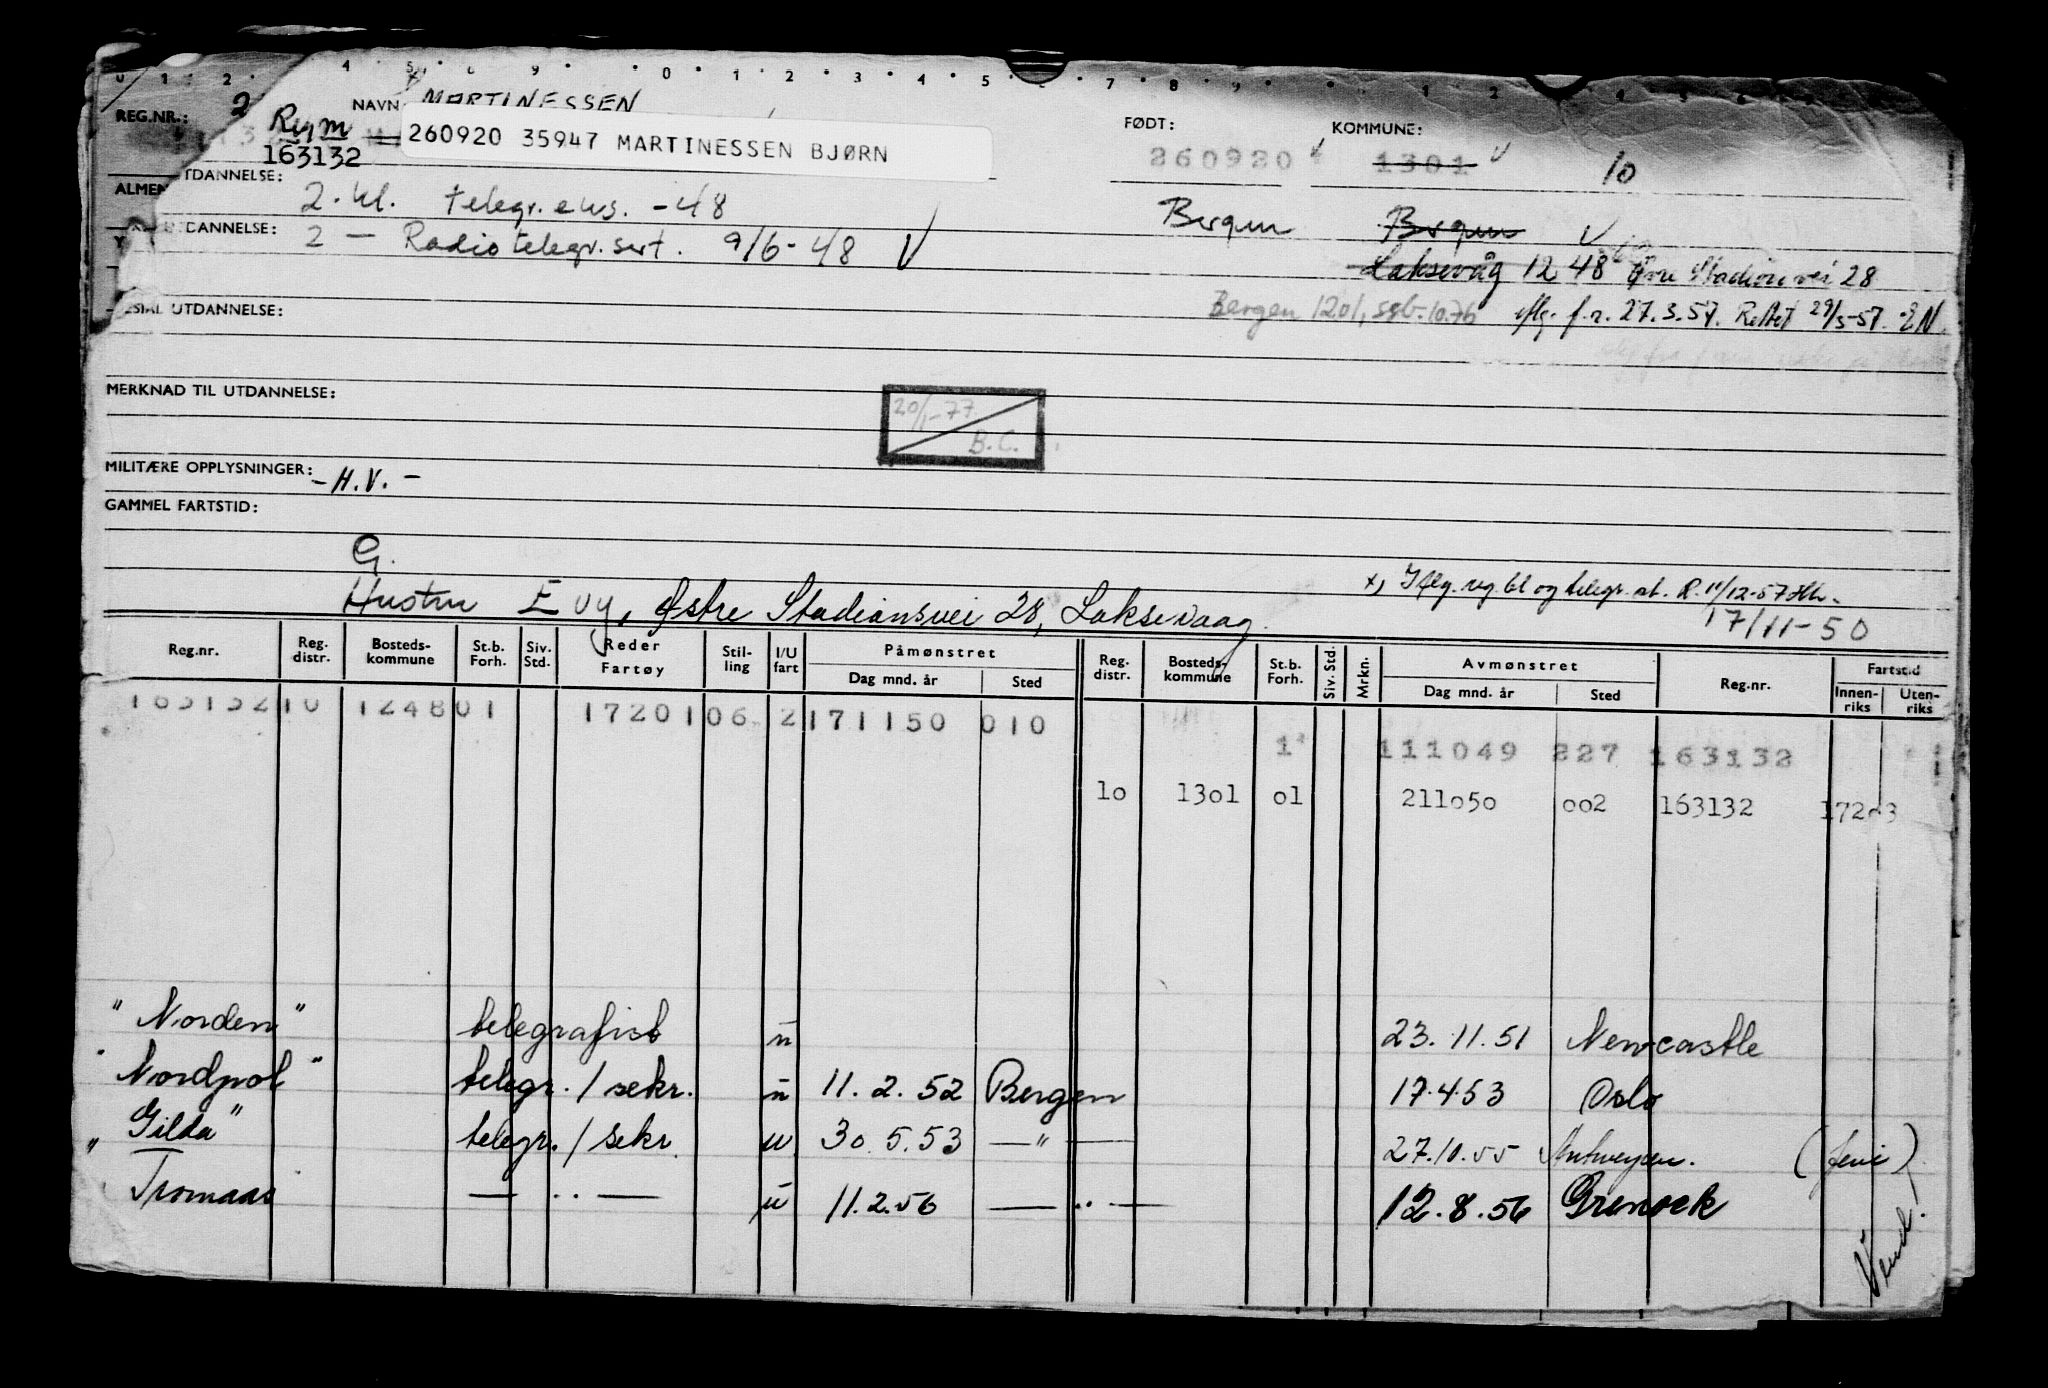 REG.NR.: 2 NAVN MARTINESSEN FØDT: KOMMUNE:
Rym
163132
260920 35947 MARTINESSEN BJØRN
260920 1301 10
ALMEN TDANNELSE: 2. kl. telegr. eks. -48 Bergen Bergen
DANNELSE: 2 — Radiotelegr. sert. 9/6-48 V
Laksevåg 1248 Øvre Stadionvei 28
SPESIAL UTDANNELSE: Bergen 1201, ssb-10.76 iflg. f.r. 27.3.57. Rettet 29/3-57. EN.
MERKNAD TIL UTDANNELSE:
20/1-77
B.C.
MILITÆRE OPPLYSNINGER: - H.V. -
GAMMEL FARTSTID:
G.
x) Iflg. reg. bl og telegr. at. R. 11/12-57
Hustru Evy, Østre Stadionsvei 28, Laksevaag.
17/11-50
Reg.nr. Reg. distr. Bosteds-kommune St.b. Forh. Siv. Std. Reder Fartøy Stil-ling I/U fart Påmønstret Dag mnd. år Sted Reg. distr. Bosteds-kommune St.b. Forh. Siv. Std. Mrkn. Avmønstret Dag mnd. år Sted Reg.nr. Fartstid Innen-riks Uten-riks
163132 10 1248 01 17201 06 2 171150 010
1 111049 227 163132
10 1301 01 211050 002 163132 17203
"Norden" telegrafist u 23.11.51 Newcastle
"Nordpol" telegr. / sekr. u 11.2.52 Bergen 17.4.53 Oslo
"Gilda" telegr. / sekr. u 30.5.53 — " — 27.10.55 Antwerpen. (ferie)
Tromaas — .. — u 11.2.56 — .. — 12.8.56 Grenock
Vend!